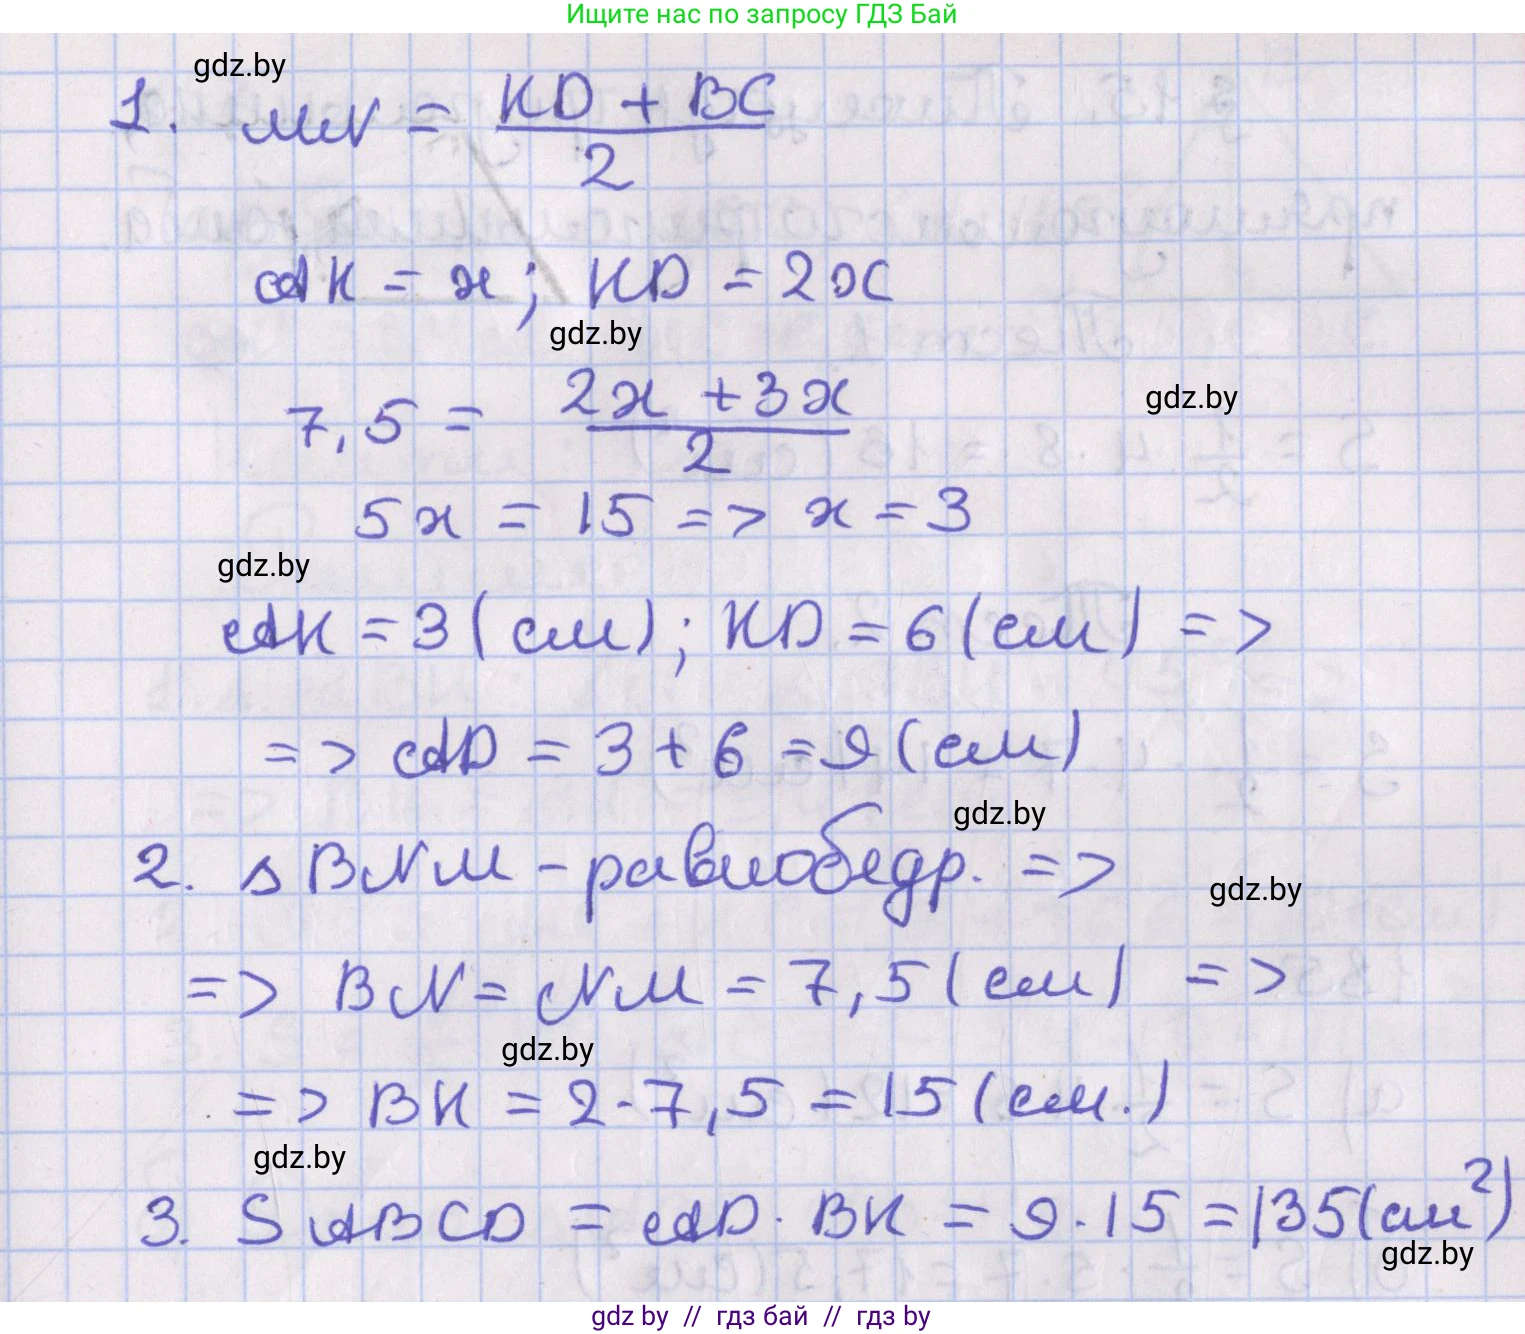 Ищите нас по запросу ГДЗ Бай
gdz.by
1. MN = (KD + BC)/2
AK = x; KD = 2x
gdz.by
7,5 = (2x + 3x)/2
gdz.by
5x = 15 => x = 3
gdz.by
AK = 3 (см); KD = 6 (см) =>
=> AD = 3 + 6 = 9 (см)
gdz.by
2. △ BNM - равнобедр. =>
gdz.by
=> BN = NM = 7,5 (см) =>
gdz.by
=> BK = 2·7,5 = 15 (см.)
gdz.by
3. S ABCD = AD · BK = 9·15 = 135 (см²)
gdz.by
gdz by // гдз бай // гдз by